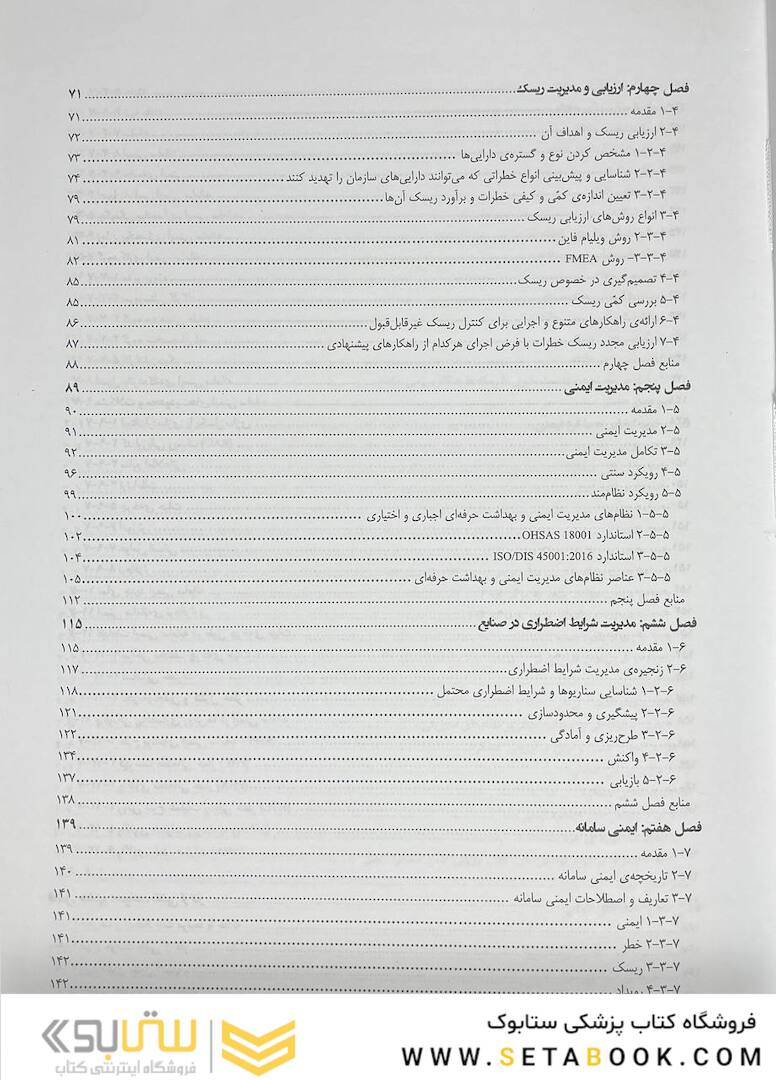 فصل چهارم: ارزیابی و مدیریت ریسک ۷۱
۴-۱ مقدمه ۷۱
۴-۲ ارزیابی ریسک و اهداف آن ۷۲
۴-۲-۱ مشخص کردن نوع و گستره‌ی دارایی‌ها ۷۳
۴-۲-۲ شناسایی و پیش‌بینی انواع خطراتی که می‌توانند دارایی‌های سازمان را تهدید کنند ۷۴
۴-۲-۳ تعیین اندازه‌ی کمّی و کیفی خطرات و برآورد ریسک آن‌ها ۷۹
۴-۳ انواع روش‌های ارزیابی ریسک ۷۹
۴-۳-۲ روش ویلیام فاین ۸۱
۴-۳-۳- روش FMEA ۸۲
۴-۴ تصمیم‌گیری در خصوص ریسک ۸۵
۴-۵ بررسی کمّی ریسک ۸۵
۴-۶ ارائه‌ی راهکارهای متنوع و اجرایی برای کنترل ریسک غیرقابل‌قبول ۸۶
۴-۷ ارزیابی مجدد ریسک خطرات با فرض اجرای هرکدام از راهکارهای پیشنهادی ۸۷
منابع فصل چهارم ۸۸
فصل پنجم: مدیریت ایمنی ۸۹
۵-۱ مقدمه ۹۰
۵-۲ مدیریت ایمنی ۹۱
۵-۳ تکامل مدیریت ایمنی ۹۲
۵-۴ رویکرد سنتی ۹۶
۵-۵ رویکرد نظام‌مند ۹۹
۵-۵-۱ نظام‌های مدیریت ایمنی و بهداشت حرفه‌ای اجباری و اختیاری ۱۰۰
۵-۵-۲ استاندارد OHSAS 18001 ۱۰۲
۵-۵-۳ استاندارد ISO/DIS 45001:2016 ۱۰۴
۵-۵-۳ عناصر نظام‌های مدیریت ایمنی و بهداشت حرفه‌ای ۱۰۵
منابع فصل پنجم ۱۱۲
فصل ششم: مدیریت شرایط اضطراری در صنایع ۱۱۵
۶-۱ مقدمه ۱۱۵
۶-۲ زنجیره‌ی مدیریت شرایط اضطراری ۱۱۷
۶-۲-۱ شناسایی سناریوها و شرایط اضطراری محتمل ۱۱۸
۶-۲-۲ پیشگیری و محدودسازی ۱۲۱
۶-۲-۳ طرح‌ریزی و آمادگی ۱۲۲
۶-۲-۴ واکنش ۱۳۴
۶-۲-۵ بازیابی ۱۳۷
منابع فصل ششم ۱۳۸
فصل هفتم: ایمنی سامانه ۱۳۹
۷-۱ مقدمه ۱۳۹
۷-۲ تاریخچه‌ی ایمنی سامانه ۱۴۰
۷-۳ تعاریف و اصطلاحات ایمنی سامانه ۱۴۱
۷-۳-۱ ایمنی ۱۴۱
۷-۳-۲ خطر ۱۴۱
۷-۳-۳ ریسک ۱۴۲
۷-۳-۴ رویداد ۱۴۲
فروشگاه کتاب پزشکی ستابوک
WWW.SETABOOK.COM
ستابوک
فروشگاه اینترنتی کتاب